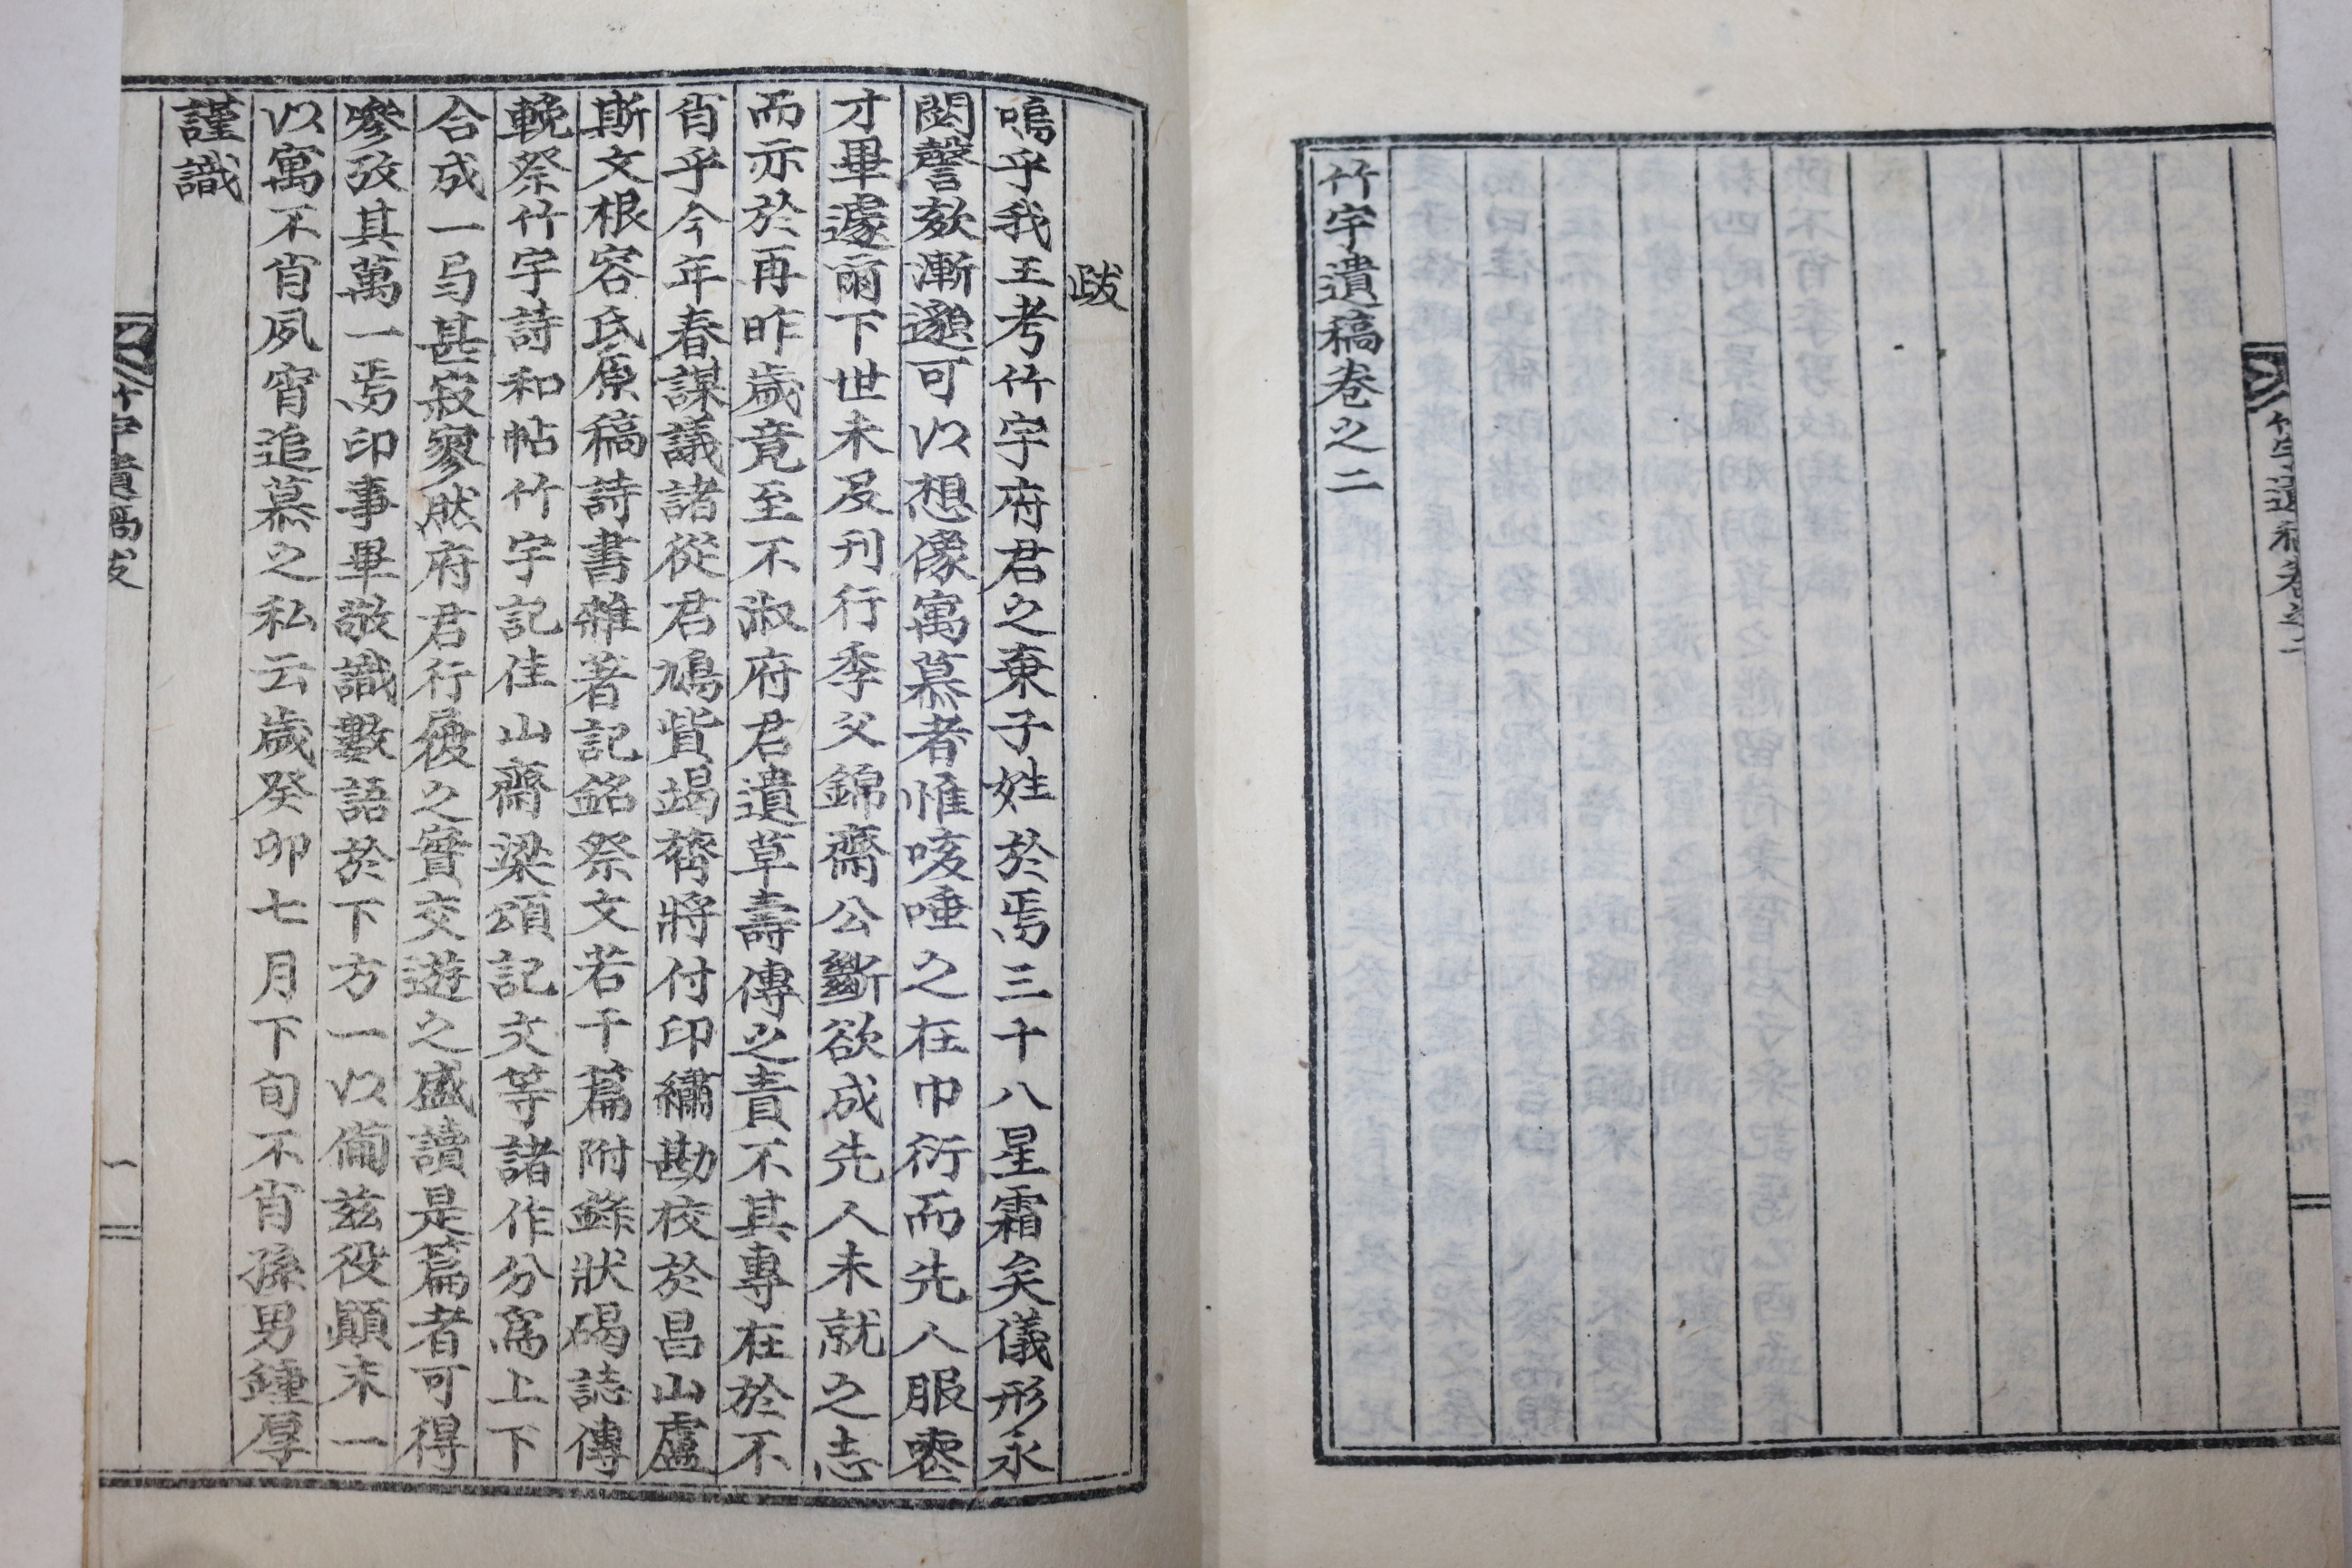 竹宇遺稿卷之二
竹宇遺稿卷之二
跋
嗚乎我王考竹宇府君之棄子姓於焉三十八星霜矣儀形永
閟謦欬漸邈可以想像寓慕者惟咳唾之在巾衍而先人服闋
才畢遽爾下世未及刊行季父錦齋公斷欲成先人未就之志
而亦於再昨歲竟至不淑府君遺草壽傳之責不其專在於不
肖乎今年春謀議諸從君鳩貲竭膂將付印繡勘校於昌山盧
斯文根容氏原稿詩書雜著記銘祭文若干篇附錄狀碣誌傳
輓祭竹宇詩和帖竹宇記佳山齋梁頌記文等諸作分爲上下
合成一弓甚寂寥然府君行履之實交遊之盛讀是篇者可得
參攷其萬一焉印事畢敬識數語於下方一以備玆役顚末一
以寓不肖夙宵追慕之私云歲癸卯七月下旬不肖孫男鍾厚
謹識
竹宇遺稿跋
一